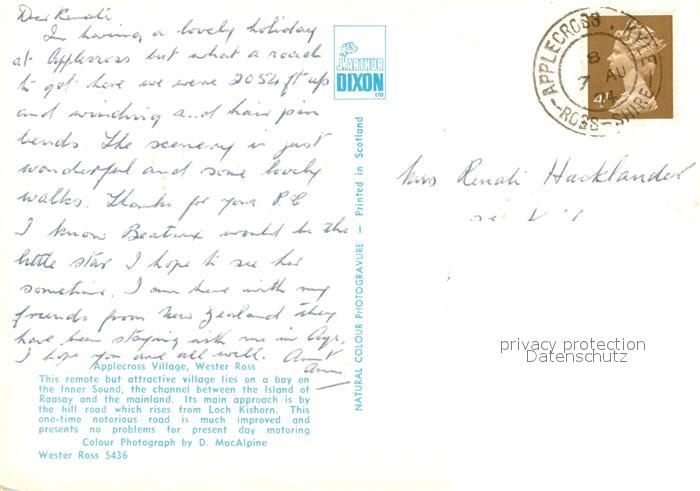 Dear Renati
Im having a lovely holiday
at Applecross but what a road
to get here we were 2054 ft up
and winding a..d hair pin
bends. The scenery is just
wonderful and some lovely
walks. Thanks for your P.C
I know Beatrix would be the
little star I hope to see her
sometime. I am here with my
friends from New Zealand they
have been staying with me in Ayr.
I hope you are all well.
Applecross Village, Wester Ross
This remote but attractive village lies on a bay on
the Inner Sound, the channel between the Island of
Raasay and the mainland. Its main approach is by
the hill road which rises from Loch Kishorn. This
one-time notorious road is much improved and
presents no problems for present day motoring
Colour Photograph by D. MacAlpine
Wester Ross 5436
J. ARTHUR
DIXON
LTD
NATURAL COLOUR PHOTOGRAVURE — Printed in Scotland
APPLECROSS · KYLE
8
7 AU
74
ROSS-SHIRE
Mrs Renati Hacklander
privacy protection
Datenschutz